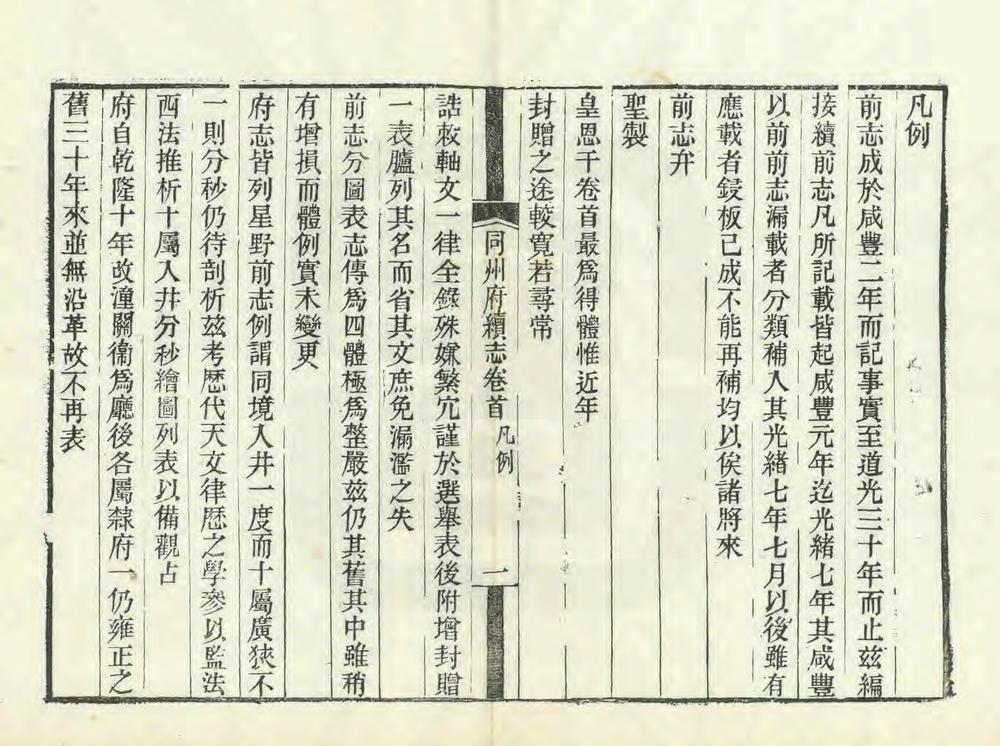 凡例
前志成於咸豐二年而記事實至道光三十年而止茲編
接續前志凡所記載皆起咸豐元年迄光緒七年其咸豐
以前前志漏載者分類補入其光緒七年七月以後雖有
應載者鋟板已成不能再補均以俟諸將來
前志弁
聖製
皇恩于卷首最爲得體惟近年
封贈之途較寬若尋常
同州府續志卷首 凡例 一
誥敕軸文一律全錄殊嫌繁冗謹於選舉表後附增封贈
一表臚列其名而省其文庶免漏濫之失
前志分圖表志傳爲四體極爲整嚴茲仍其舊其中雖稍
有增損而體例實未變更
府志皆列星野前志例謂同境入井一度而十屬廣狹不
一則分秒仍待剖析茲考歷代天文律歷之學參以監法
西法推析十屬入井分秒繪圖列表以備觀占
府自乾隆十年故潼關衞爲廳後各屬隸府一仍雍正之
舊三十年來並無沿革故不再表